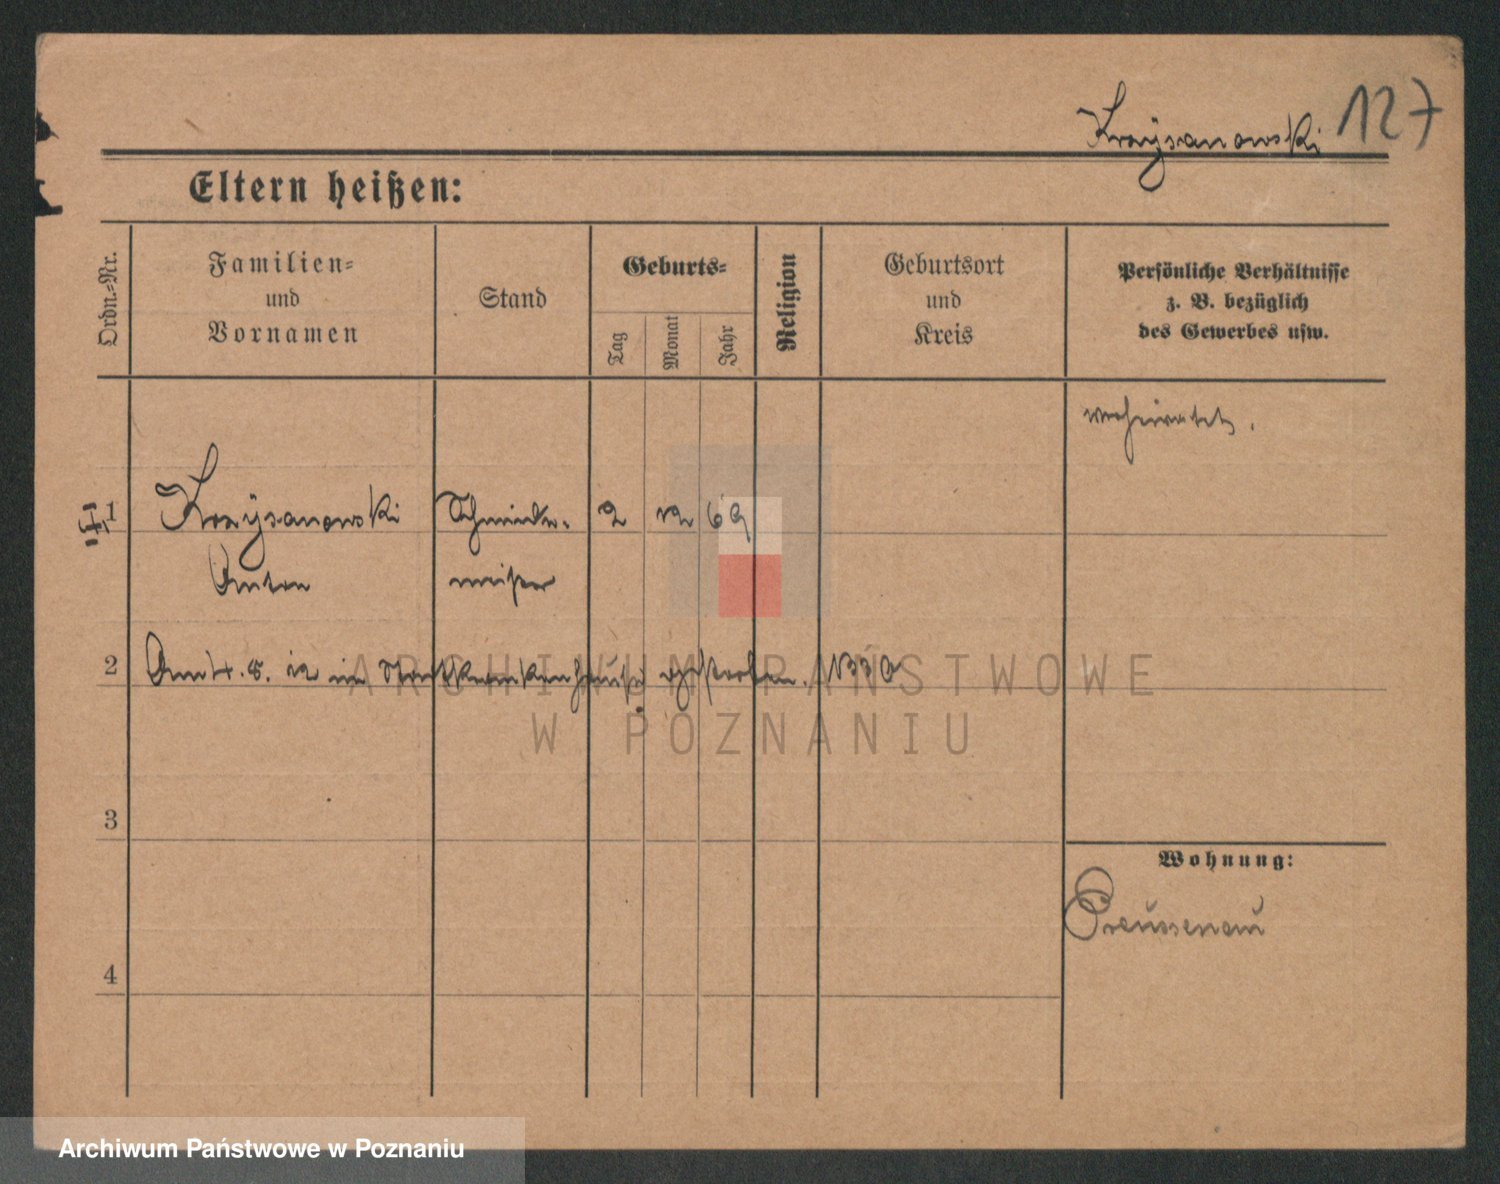 Krzysanowski 127
Eltern heißen:
Ordn.-Nr.
Familien-
und
Vornamen
Stand
Geburts-
Tag
Monat
Jahr
Religion
Geburtsort
und
Kreis
Persönliche Verhältnisse
z. B. bezüglich
des Gewerbes usw.
verheiratet.
1 Krzysanowski Schmiede- 2 12 69
Anton meister
2 Am 4. 8. 12 im gestorben.
ARCHIWUM PAŃSTWOWE
W POZNANIU
3
Wohnung:
Preussenau
4
Archiwum Państwowe w Poznaniu